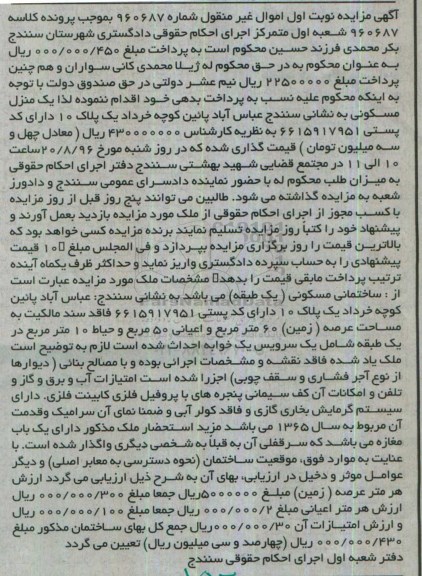 آگهی مزایده نوبت اول اموال غیر منقول شماره ۹۶۰۶۸۷ بموجب پرونده کلاسه
۹۶۰۶۸۷ شعبه اول متمرکز اجرای احکام حقوقی دادگستری شهرستان سنندج
بکر محمدی فرزند حسین محکوم است به پرداخت مبلغ ۰۰۰/۰۰۰/۴۵۰ ریال
به عنوان محکوم به در حق محکوم له ژیلا محمدی کانی سواران و هم چنین
پرداخت مبلغ ۲۲۵۰۰۰۰۰ ریال نیم عشر دولتی در حق صندوق دولت با توجه
به اینکه محکوم علیه نسب به پرداخت بدهی خود اقدام ننموده لذا یک منزل
مسکونی به نشانی سنندج عباس آباد پائین کوچه خرداد یک پلاک ۱۰ دارای کد
پستی ۶۶۱۵۹۱۷۹۵۱ به نظریه کارشناس ۴۳۰۰۰۰۰۰۰ ریال ( معادل چهل و
سه میلیون تومان ) قیمت گذاری شده که در روز شنبه مورخ ۲۰/۸/۹۶ساعت
۱۰ الی ۱۱ در مجتمع قضایی شهید بهشتی سنندج دفتر اجرای احکام حقوقی
به میزان طلب محکوم له با حضور نماینده دادسرای عمومی سنندج و دادورز
شعبه به مزایده گذاشته می شود. طالبین می توانند پنج روز قبل از روز مزایده
با کسب مجوز از اجرای احکام حقوقی از ملک مورد مزایده بازدید بعمل آورند و
پیشنهاد خود را کتباً روز مزایده تسلیم نمایند برنده مزایده کسی خواهد بود که
بالاترین قیمت را روز برگزاری مزایده بپردازد و فی المجلس مبلغ ۱۰ قیمت
پیشنهادی را به حساب سپرده دادگستری واریز نماید و حداکثر ظرف یکماه آینده
ترتیب پرداخت مابقی قیمت را بدهد مشخصات ملک مورد مزایده عبارت است
از : ساختمانی مسکونی ( یک طبقه) می باشد به نشانی سنندج: عباس آباد پائین
کوچه خرداد یک پلاک ۱۰ دارای کد پستی ۶۶۱۵۹۱۷۹۵۱ فاقد سند مالکیت به
مساحت عرصه ( زمین) ۶۰ متر مربع و اعیانی ۵۰ مربع و حیاط ۱۰ متر مربع در
یک طبقه شامل یک سرویس یک خوابه احداث شده است لازم به توضیح است
ملک یاد شده فاقد نقشه و مشخصات اجرائی بوده و با مصالح بنائی ( دیوارها
از نوع آجر فشاری و سقف چوبی) اجرا شده است امتیازات آب و برق و گاز و
تلفن و امکانات آن کف سیمانی پنجره های با پروفیل فلزی کابینت فلزی. دارای
سیستم گرمایش بخاری گازی و فاقد کولر آبی و ضمنا نمای آن سرامیک وقدمت
آن مربوط به سال ۱۳۶۵ می باشد مزید استحضار ملک مذکور دارای یک باب
مغازه می باشد که سرقفلی آن به قبلاً به شخصی دیگری واگذار شده است. با
عنایت به موارد فوق، موقعیت ساختمان (نحوه دسترسی به معابر اصلی) و دیگر
عوامل موثر و دخیل در ارزیابی، بهای آن به شرح ذیل ارزیابی می گردد ارزش
هر متر عرصه ( زمین) مبلغ ۵۰۰۰۰۰۰ریال جمعا مبلغ ۰۰۰/۰۰۰/۳۰۰ ریال
ارزش هر متر اعیانی مبلغ ۰۰۰/۰۰۰/۲ ریال جمعا مبلغ ۰۰۰/۰۰۰/۱۰۰ ریال
و ارزش امتیازات آن ۰۰۰/۰۰۰/۳۰ریال جمع کل بهای ساختمان مذکور مبلغ
۰۰۰/۰۰۰/۴۳۰ ریال (چهارصد و سی میلیون ریال) تعیین می گردد
دفتر شعبه اول اجرای احکام حقوقی سنندج